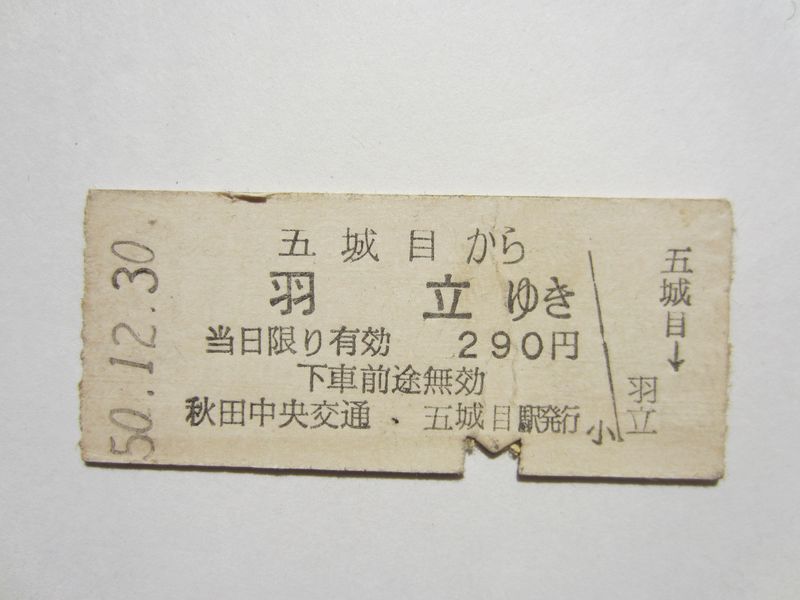 50.12.30
五城目から
羽立ゆき
当日限り有効 290円
下車前途無効
秋田中央交通、五城目駅発行
小
五城目→
羽立